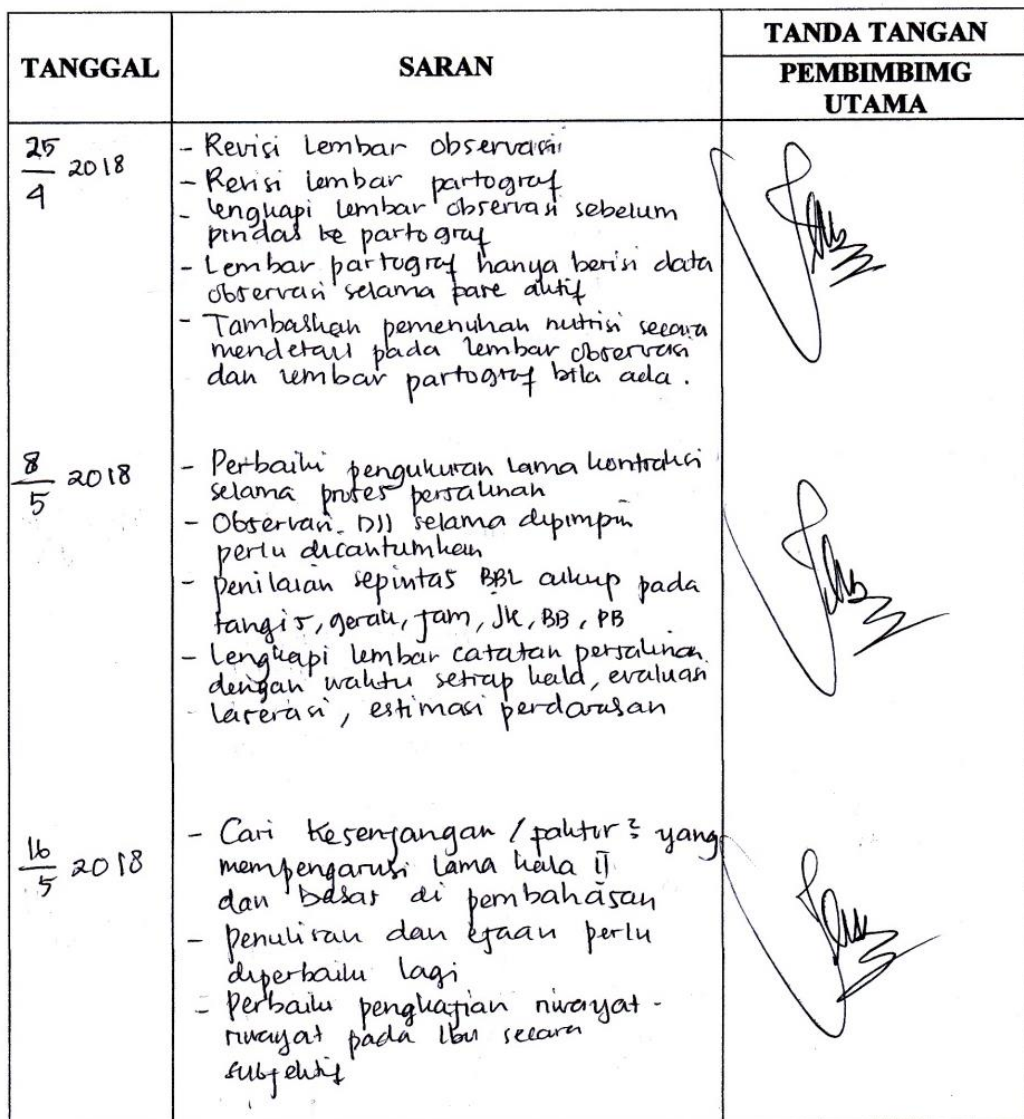 TANGGAL
SARAN
TANDA TANGAN
PEMBIMBIMG
UTAMA
25/4 2018
- Revisi Lembar observasi
- Revisi lembar partograf
- Lengkapi lembar observasi sebelum
pindah ke partograf
- Lembar partograf hanya berisi data
observasi selama fase aktif
- Tambahkan pemenuhan nutrisi secara
mendetail pada lembar observasi
dan lembar partograf bila ada.
8/5 2018
- Perbaiki pengukuran lama kontraksi
selama proses persalinan
- Observasi DJJ selama dipimpin
perlu dicantumkan
- penilaian sepintas BBL cukup pada
tangis, gerak, jam, JK, BB, PB
- Lengkapi lembar catatan persalinan
dengan waktu setiap kala, evaluasi
laserasi, estimasi perdarahan
16/5 2018
- Cari kesenjangan / faktor² yang
mempengaruhi lama kala II
dan bahas di pembahasan
- penulisan dan ejaan perlu
diperbaiki lagi
- Perbaiki pengkajian riwayat-
riwayat pada Ibu secara
subjektif